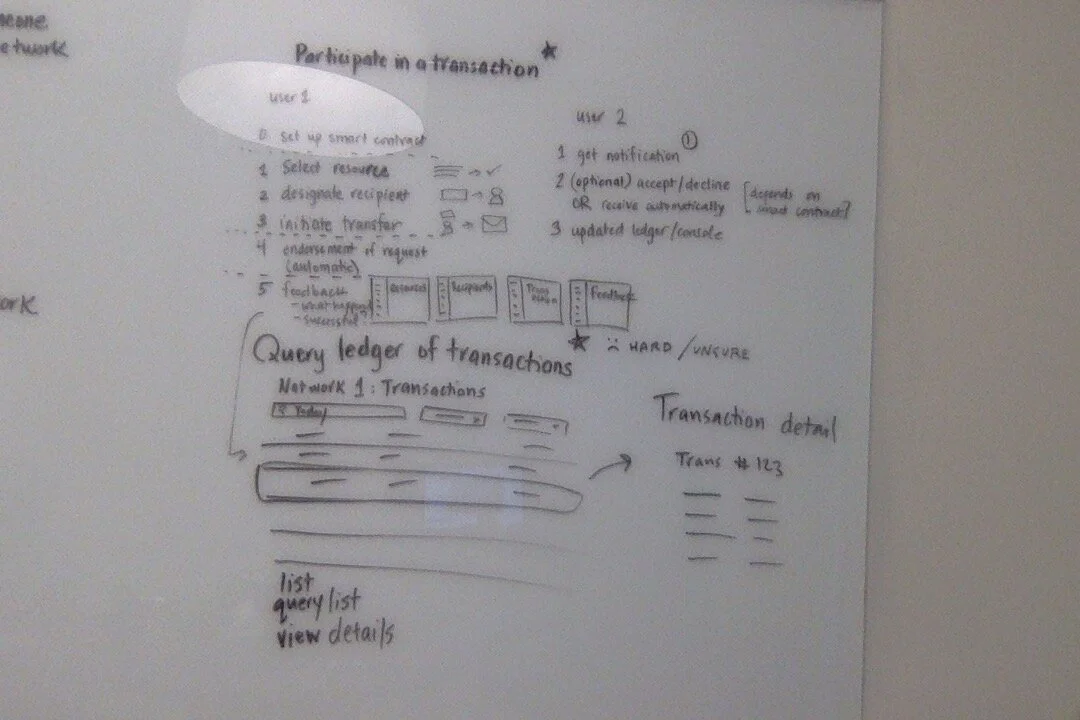 eone
etwork
ork
Participate in a transaction
user 1
0 set up smart contract
1 Select resource
2 designate recipient
3 initiate transfer
4 endorsement of request
(automatic)
5 feedback
- what happened
- successful?
user 2
1 get notification
1
2 (optional) accept/decline
OR receive automatically
[depends on
smart contract?
3 updated ledger/console
Resources
Recipients
Feedback
Query ledger of transactions
:( HARD / UNSURE
Network 1: Transactions
Today
Transaction detail
Trans # 123
list
query list
view details